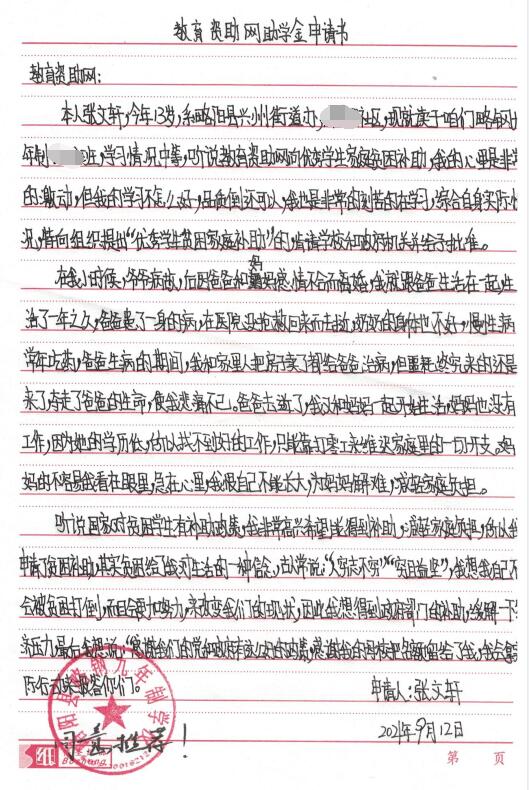 教育资助网助学金申请书
教育资助网:
本人张文轩,今年13岁,系略阳县兴州街道办,社区,现就读于咱们略钢九
年制班,学习情况中等,听说教育资助网向优秀学生家庭贫困补助,我的心里是非常
的激动,但我的学习不怎么好,品质倒还可以,我也是非常的刻苦的在学习,综合自身实际情
况,特向组织提出“优秀学生贫困家庭补助”的,申请学校和政府机关并给予批准。
在我小时候,爷爷病故,后因爸爸和妈妈感情不合而离婚,我就跟爸爸生活在一起,生
活了一年之久,爸爸患了一身的病,在医院没抢救回来而去世,奶奶的身体也不好,慢性病
常年吃药,爸爸生病的期间,我和家里人把房子卖了都给爸爸治病,但噩耗终究来的还是
来了夺走了爸爸的生命,使我悲痛不已。爸爸去逝了,我又和妈妈一起开始生活,妈妈也没有
工作,因为她的学历低,所以找不到好的工作,只能靠打零工来维持家庭里的一切开支。妈
妈的不容易我看在眼里,急在心里,我恨自己不能长大,为妈妈解难,减轻家庭负担。
听说国家对贫困学生有补助政策,我非常高兴希望能得到补助,减轻家庭负担,所以我
申请了贫困补助,其实贫困给了我对生活的一种信念,古人常说:“人穷志不穷”“穷且益坚”,我想我自己不
会被贫困打倒,而且会更加努力,来改变我们的现状,因此我想得到政府部门的补助,缓解一下经
济压力,最后我想说“感谢我们的党和政府有这么好的政策,感谢我的母校把名额留给了我,我会用实
际行动来报答你们。
申请人:张文轩
2021年9月12日
略阳县略钢九年制学校
同意推荐!
纸
第 页